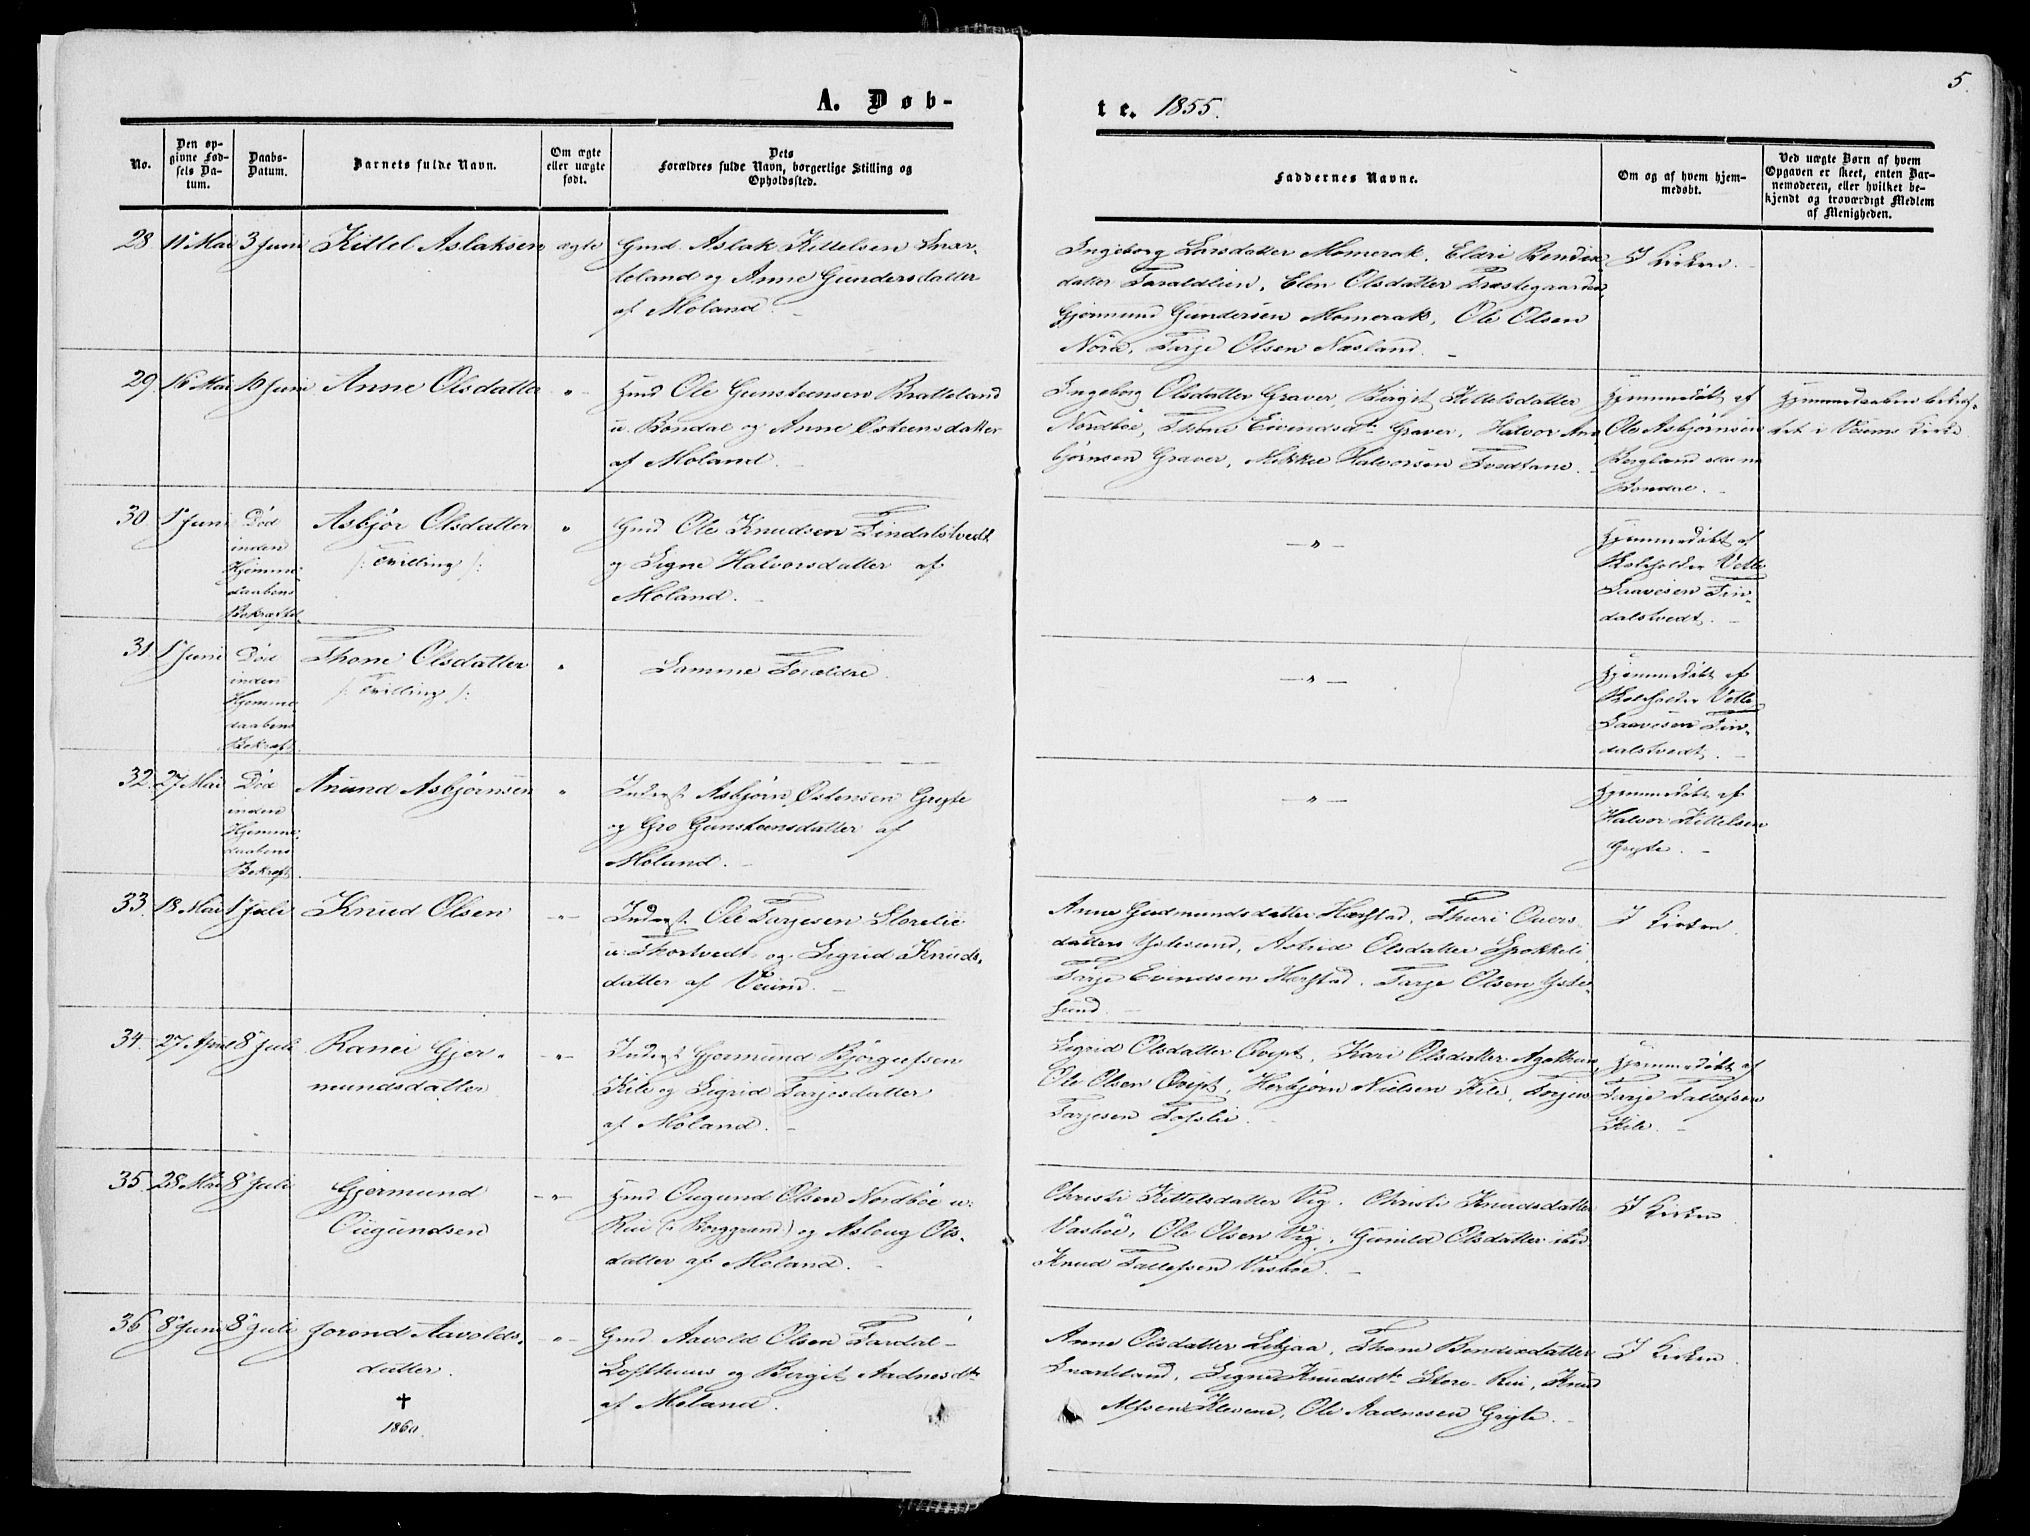 5.
A. Døb-
te. 1855.
No.
Den op-
givne Fød-
sels Da-
tum.
Daabs-
Datum.
Barnets fulde Navn.
Om ægte
eller uægte
født.
Dets
Forældres fulde Navn, borgerlige Stilling og
Opholdssted.
Faddernes Navne.
Om og af hvem hjem-
medøbt.
Ved uægte Børn af hvem
Opgaven er skeet, enten Bar-
nemoderen, eller hvilket be-
kjendt og troværdigt Medlem
af Menigheden.
28 11 Mai 3 Juni Kittel Aslaksen ægte Gmd. Aslak Kittelsen Snar-
teland og Anne Gundersdatter
af Moland.
Ingeborg Larsdatter Momrak, Eldri Bendix
datter Taraldlien, Elen Olsdatter Præstegaarden,
Gjermund Gundersen Momrak, Ole Olsen
Nöra, Tarje Olsen Næsland.
I Kirken.
29. 16 Mai 10 Juni Anne Olsdatter " Hmd Ole Gunsteensen Bratteland
u. Bondal og Anne Østensdatter
af Moland.
Ingeborg Olsdatter Graver, Birgit Kittelsdatter
Nordböe, Thone Eivindsdt. Graver, Halvor As
bjørnsen Graver, Mikkel Halvorsen Tvedtane.
Hjemmedøbt af
Ole Asbjørnsen
Bergland
Bondal.
Hjemmedaaben
i Veums Kirke
30 1 Juni Død
inden
Hjemme-
daabens
Bekræftel.
Asbjør Olsdatter
/: Tvilling :/
" Gmd Ole Knudsen Findalstvedt
og Signe Halvorsdatter af
Moland.
— " —
Hjemmedøbt af
Skoleholder Vetle
Saavesen Fin-
dalstvedt.
31. 1 Juni Død
inden
Hjemme-
daabens
Bekræft.
Thone Olsdatter
/: Tvilling :/
" Samme Forældre.
— " —
Hjemmedøbt af
Skoleholder Vetle
Saavesen Fin-
dalstvedt.
32. 27 Mai Død
inden
Hjemme-
daabens
Bekræft.
Anund Asbjørnsen
" Inderst Asbjørn Østensen Grytte
og Gro Gunsteensdatter af
Moland.
— " —
Hjemmedøbt af
Halvor Kittelsen
Grytte.
33. 18 Mai 1 Juli Knud Olsen — " — Inderst Ole Tarjesen Storelie
u. Thortvedt og Sigrid Knuds-
datter af Veum.
Anne Gudmundsdatter Hægstad, Thuri Ouens
datter Ystesund, Astrid Olsdatter Spokkeli,
Tarje Evindsen Hægstad, Tarje Olsen Yste-
sund.
I Kirken
34. 27 April 8 Juli Ranei Gjer-
mundsdatter
— " — Inderst Gjermund Bjørgufsen
Kile og Sigrid Tarjesdatter
af Moland.
Sigrid Olsdatter Qvipt, Kari Olsdatter
Ole Olsen Qvipt, Herbjørn Nielsen Kile, Torjus
Tarjesen Tofslie.
Hjemmedøbt af
Tarje Tallefsen
Kile.
35. 28 Mai 8 Juli Gjermund
Ougundsen
— " — Hmd Ougund Olsen Nordböe u.
Rui (i Borggrænd) og Asloug Ols-
datter af Moland.
Christi Kittelsdatter Vig, Christi Knudsdatter
Vasböe, Ole Olsen Vig, Gunild Olsdatter ibd
Knud Tallefsen Vasböe.
I Kirken
36 8 Juni 8 Juli Jorond Aavolds-
datter.
✝
1860.
— " — Gmd. Aavold Olsen Fardal-
Lofthuus og Bergit Aadnesdtr
af Moland.
Anne Olsdatter Lekjaa, Thone Bendixdatter
Snarteland, Signe Knudsdtr Store-Rui, Knud
Alfsen Klevene, Ole Aadnesen Grytte.
I Kirken.